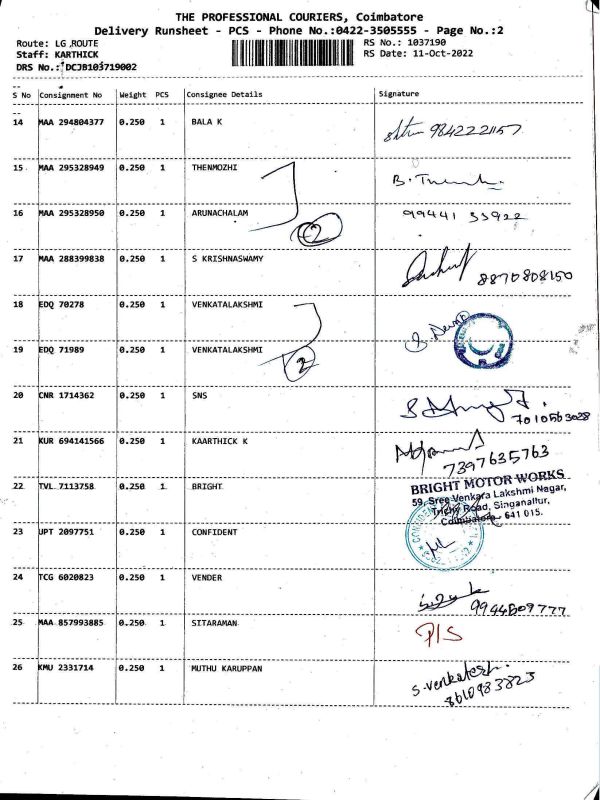 THE PROFESSIONAL COURIERS, Coimbatore
Delivery Runsheet - PCS - Phone No.:0422-3505555 - Page No.:2
Route: LG ,ROUTE RS No.: 1037190
Staff: KARTHICK RS Date: 11-Oct-2022
DRS No.: DCJB103719002
S No Consignment No Weight PCS Consignee Details Signature
14 MAA 294804377 0.250 1 BALA K 9842221157
15 MAA 295328949 0.250 1 THENMOZHI B.
16 MAA 295328950 0.250 1 ARUNACHALAM 2 99441 33922
17 MAA 288399838 0.250 1 S KRISHNASWAMY 8870808150
18 EDQ 70278 0.250 1 VENKATALAKSHMI
19 EDQ 71989 0.250 1 VENKATALAKSHMI 2
20 CNR 1714362 0.250 1 SNS 7010563028
21 KUR 694141566 0.250 1 KAARTHICK K 7397635763
22 TVL 7113758 0.250 1 BRIGHT BRIGHT MOTOR WORKS
59, Sree Venkara Lakshmi Nagar,
Trichy Road, Singanallur,
Coimbatore - 641 015.
23 UPT 2097751 0.250 1 CONFIDENT
24 TCG 6020823 0.250 1 VENDER 9944509777
25 MAA 857993885 0.250 1 SITARAMAN P/S
26 KMU 2331714 0.250 1 MUTHU KARUPPAN S.Venkatesh.
8610983823